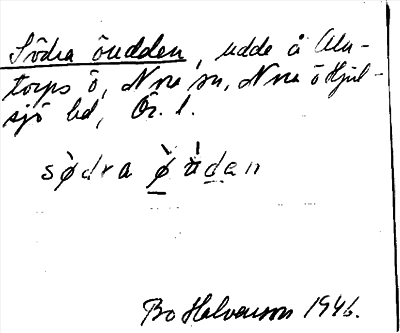 Södra öudden, udde å Ala-
torps ö, Nra sn, N:a öHjul-
sjö bd, Ör. l.
sø̀dra ø̀ ùdan
Bo Halvarson 1946.